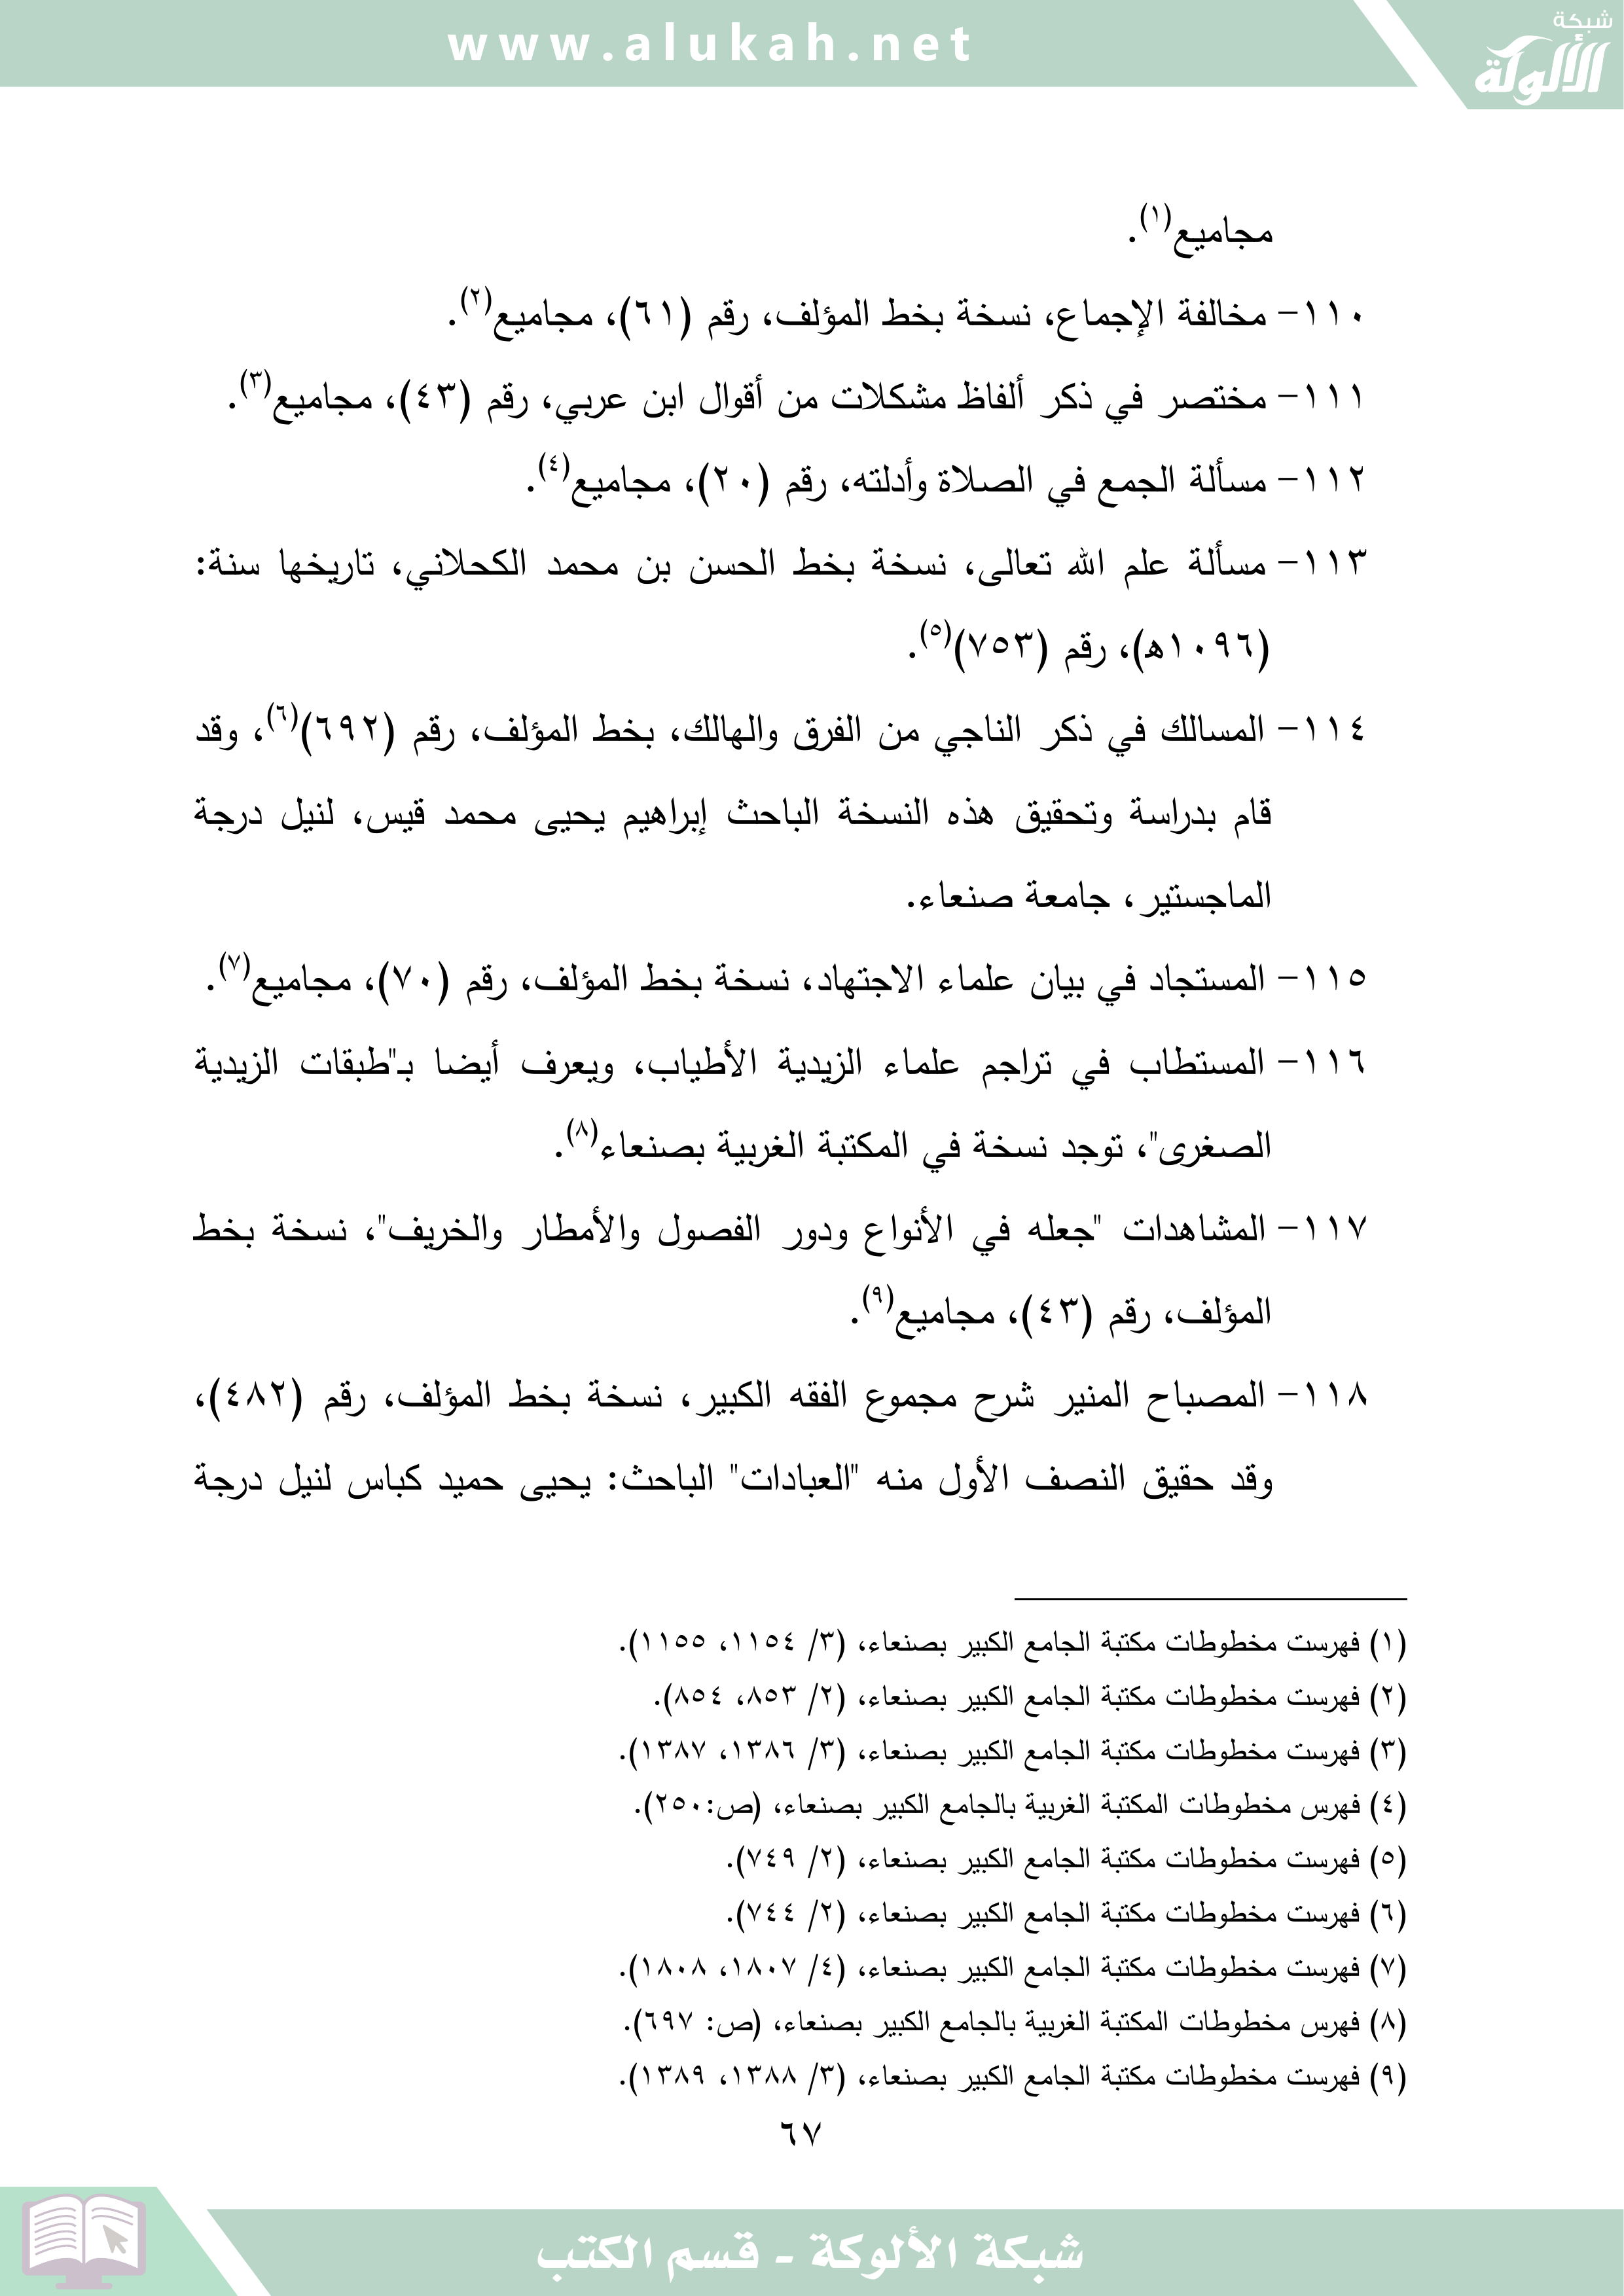 www.alukah.net
شبكة
الألوكة
مجاميع(١).
١١٠- مخالفة الإجماع، نسخة بخط المؤلف، رقم (٦١)، مجاميع(٢).
١١١- مختصر في ذكر ألفاظ مشكلات من أقوال ابن عربي، رقم (٤٣)، مجاميع(٣).
١١٢- مسألة الجمع في الصلاة وأدلته، رقم (٢٠)، مجاميع(٤).
١١٣- مسألة علم الله تعالى، نسخة بخط الحسن بن محمد الكحلاني، تاريخها سنة:
(١٠٩٦ه)، رقم (٧٥٣)(٥).
١١٤- المسالك في ذكر الناجي من الفرق والهالك، بخط المؤلف، رقم (٦٩٢)(٦)، وقد
قام بدراسة وتحقيق هذه النسخة الباحث إبراهيم يحيى محمد قيس، لنيل درجة
الماجستير، جامعة صنعاء.
١١٥- المستجاد في بيان علماء الاجتهاد، نسخة بخط المؤلف، رقم (٧٠)، مجاميع(٧).
١١٦- المستطاب في تراجم علماء الزيدية الأطياب، ويعرف أيضا بـ"طبقات الزيدية
الصغرى"، توجد نسخة في المكتبة الغربية بصنعاء(٨).
١١٧- المشاهدات "جعله في الأنواع ودور الفصول والأمطار والخريف"، نسخة بخط
المؤلف، رقم (٤٣)، مجاميع(٩).
١١٨- المصباح المنير شرح مجموع الفقه الكبير، نسخة بخط المؤلف، رقم (٤٨٢)،
وقد حقيق النصف الأول منه "العبادات" الباحث: يحيى حميد كباس لنيل درجة
(١) فهرست مخطوطات مكتبة الجامع الكبير بصنعاء، (٣/ ١١٥٤، ١١٥٥).
(٢) فهرست مخطوطات مكتبة الجامع الكبير بصنعاء، (٢/ ٨٥٣، ٨٥٤).
(٣) فهرست مخطوطات مكتبة الجامع الكبير بصنعاء، (٣/ ١٣٨٦، ١٣٨٧).
(٤) فهرس مخطوطات المكتبة الغربية بالجامع الكبير بصنعاء، (ص:٢٥٠).
(٥) فهرست مخطوطات مكتبة الجامع الكبير بصنعاء، (٢/ ٧٤٩).
(٦) فهرست مخطوطات مكتبة الجامع الكبير بصنعاء، (٢/ ٧٤٤).
(٧) فهرست مخطوطات مكتبة الجامع الكبير بصنعاء، (٤/ ١٨٠٧، ١٨٠٨).
(٨) فهرس مخطوطات المكتبة الغربية بالجامع الكبير بصنعاء، (ص: ٦٩٧).
(٩) فهرست مخطوطات مكتبة الجامع الكبير بصنعاء، (٣/ ١٣٨٨، ١٣٨٩).
٦٧
شبكة الألوكة - قسم الكتب